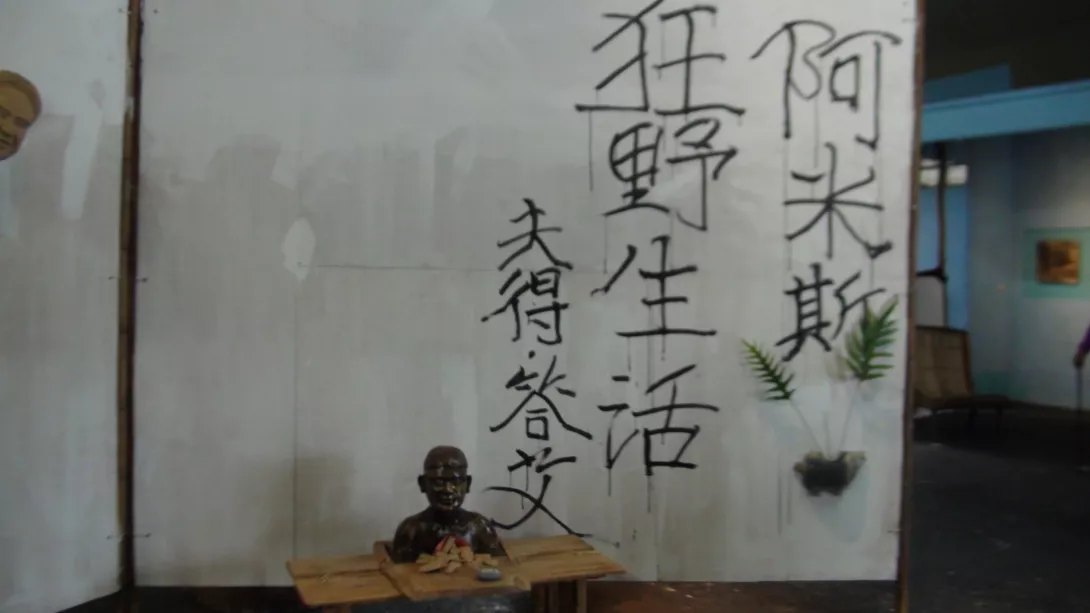 阿米斯
狂野生活
夫得．答艾